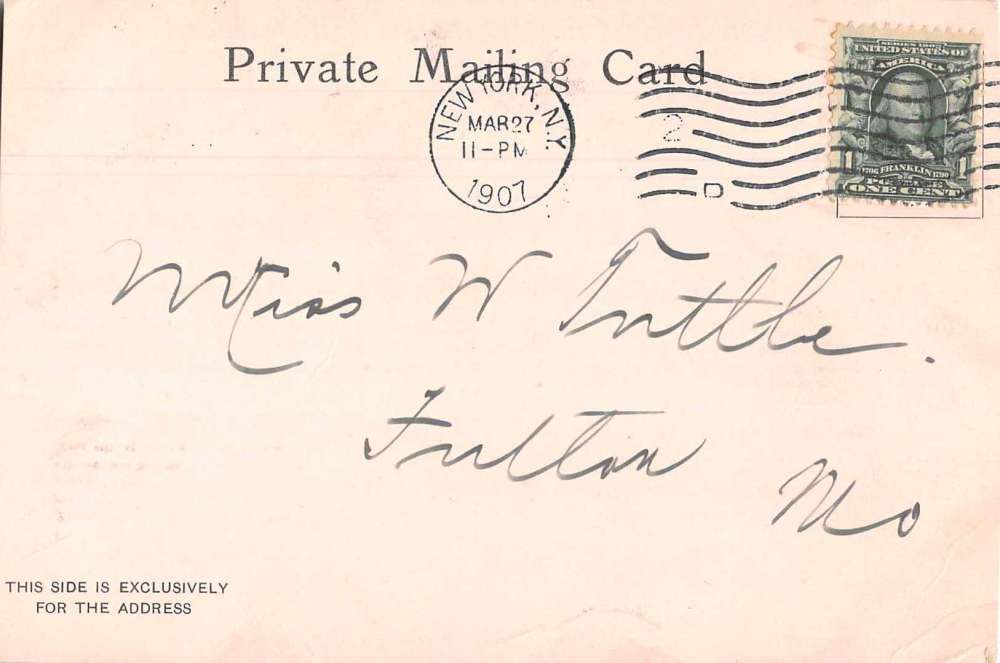 Private Mailing Card
NEW YORK, N.Y.
MAR 27
11-PM
1907
2
D
SERIES 1902
UNITED STATES OF
AMERICA
1706 FRANKLIN 1790
1 1
ONE CENT
Miss W Tuttle.
Fulton
Mo
THIS SIDE IS EXCLUSIVELY
FOR THE ADDRESS